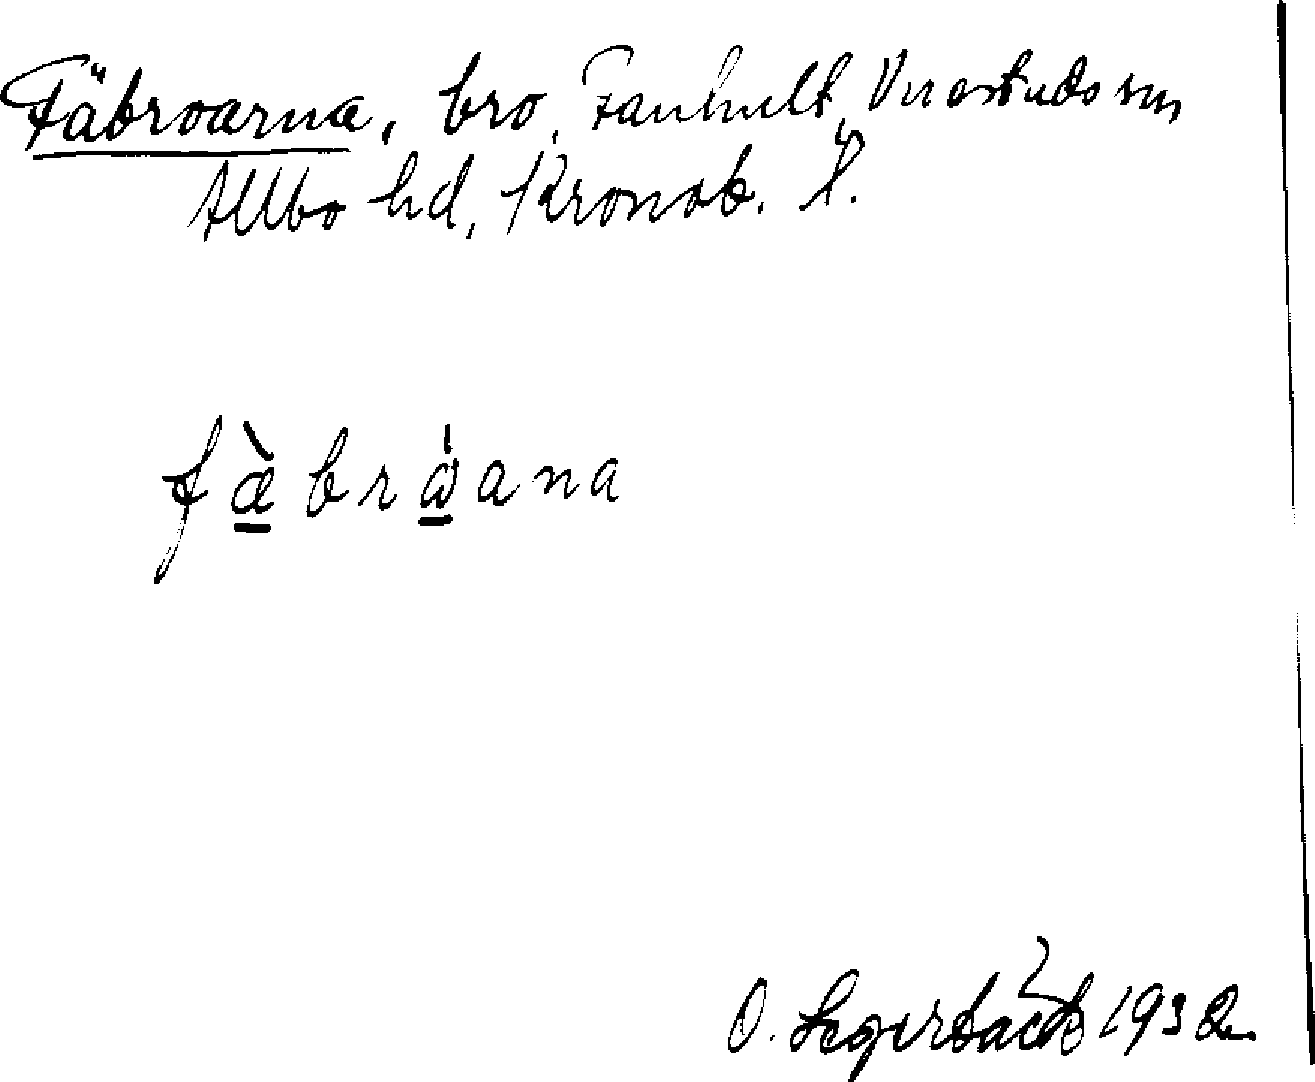 Fäbroarna, bro, Fanhult, Virestads sn,
Allbo hd, Kronob. l.
fæ̠̀brⱥ̠̍ana
O. Segerbäck 1932